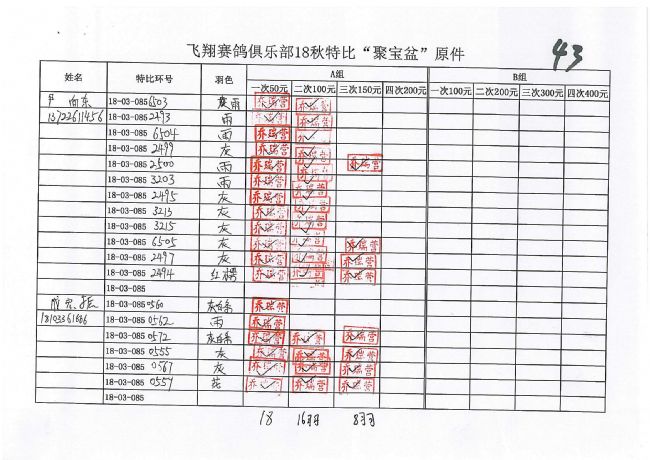 飞翔赛鸽俱乐部18秋特比“聚宝盆”原件
43
姓名 特比环号 羽色 A组 B组
一次50元 二次100元 三次150元 四次200元 一次100元 二次200元 三次300元 四次400元
向东 18-03-085 6503 灰雨 乔瑞营 乔瑞营
13722611456 18-03-085 2493 雨 乔瑞营 乔瑞营
18-03-085 6504 雨 乔瑞营 乔瑞营
18-03-085 2499 灰 乔瑞营 乔瑞营
18-03-085 2500 雨 乔瑞营 乔瑞营 乔瑞营
18-03-085 3203 雨 乔瑞营 乔瑞营
18-03-085 2495 灰 乔瑞营 乔瑞营
18-03-085 3213 灰 乔瑞营 乔瑞营
18-03-085 3215 灰 乔瑞营 乔瑞营
18-03-085 6505 灰 乔瑞营 乔瑞营 乔瑞营
18-03-085 2497 灰 乔瑞营 乔瑞营 乔瑞营
18-03-085 2494 红楞 乔瑞营 乔瑞营 乔瑞营
18-03-085
18-03-085 0560 灰白条 乔瑞营
18-03-085 0562 雨 乔瑞营
18-03-085 0572 灰白条 乔瑞营 乔瑞营 乔瑞营
18-03-085 0555 灰 乔瑞营 乔瑞营 乔瑞营
18-03-085 0567 灰 乔瑞营 乔瑞营 乔瑞营
18-03-085 0559 花 乔瑞营 乔瑞营 乔瑞营
18-03-085
18 16羽 8羽